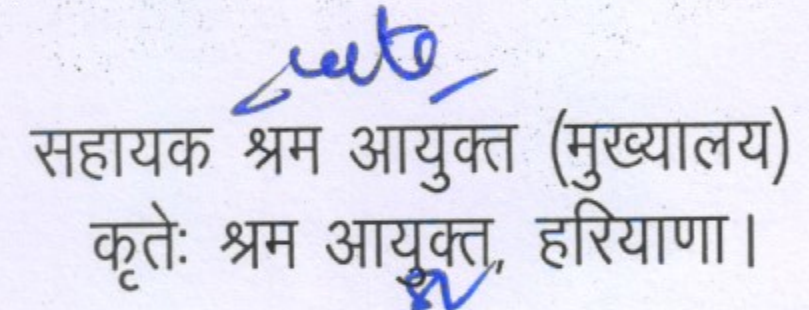 सहायक श्रम आयुक्त (मुख्यालय)
कृतेः श्रम आयुक्त, हरियाणा।